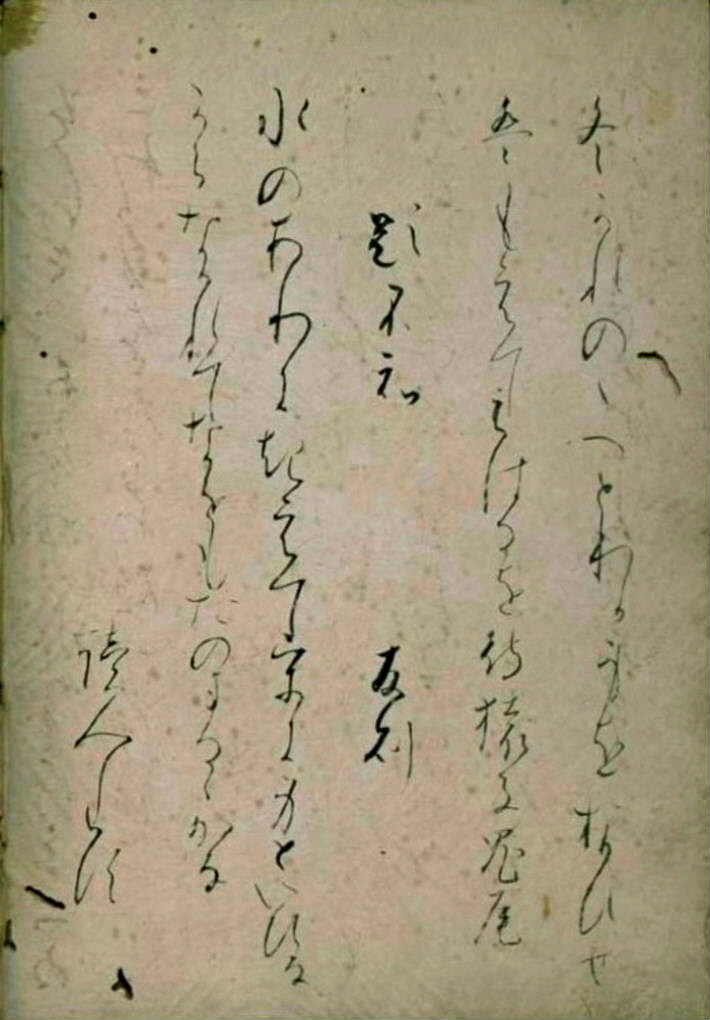 冬かれのゝへとわか身をおもひせ
はもえてもはるを待猿鬼尾
題不知　友則
水のあわのきえてうき身といひな
からなかれてなをもたのまるゝかな
讀人しらす